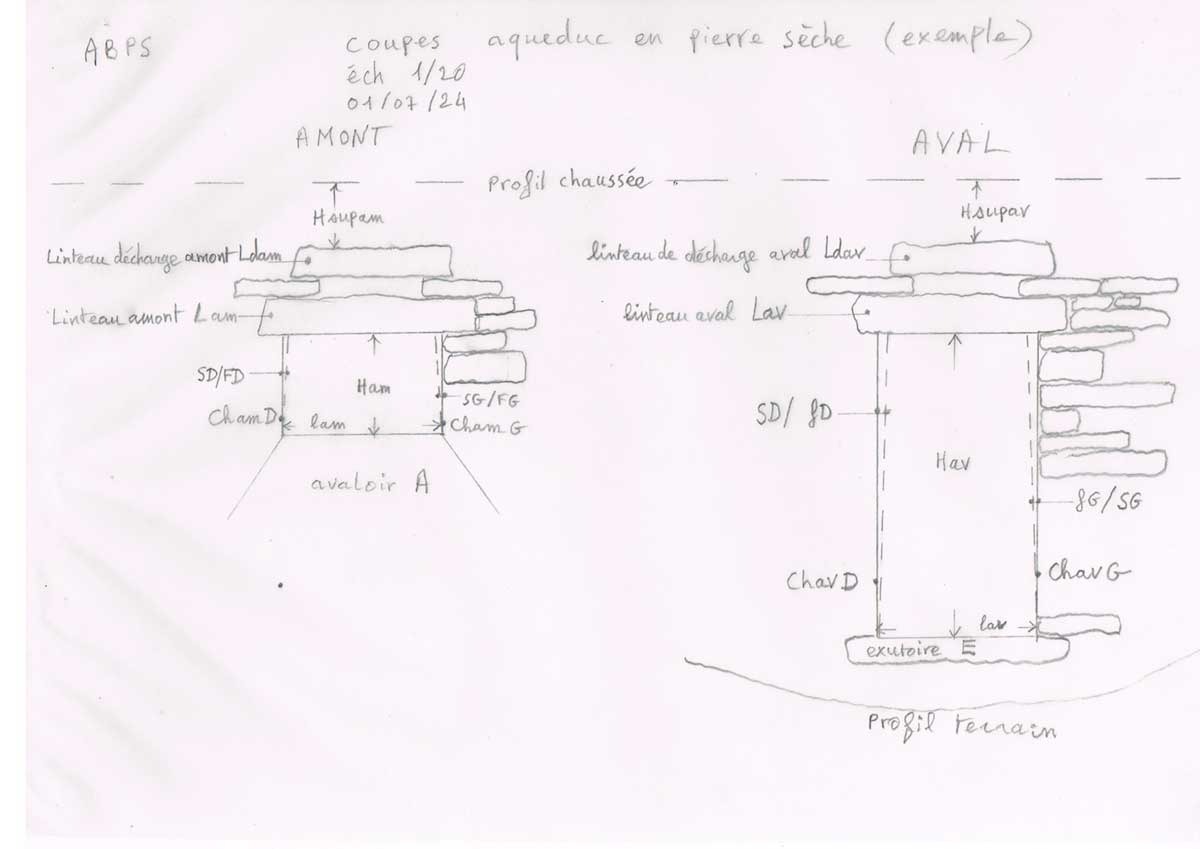 ABPS
coupes aqueduc en pierre sèche (exemple)
éch 1/20
01/07/24
AMONT
AVAL
Profil chaussée
Hsupam
Hsupav
Linteau décharge amont Ldam
linteau de décharge aval Ldav
Linteau amont Lam
linteau aval Lav
SD/FD
Ham
SG/FG
ChamD
lam
Cham G
SD/fD
Hav
avaloir A
fG/SG
Chav D
Chav G
lav
exutoire E
Profil terrain